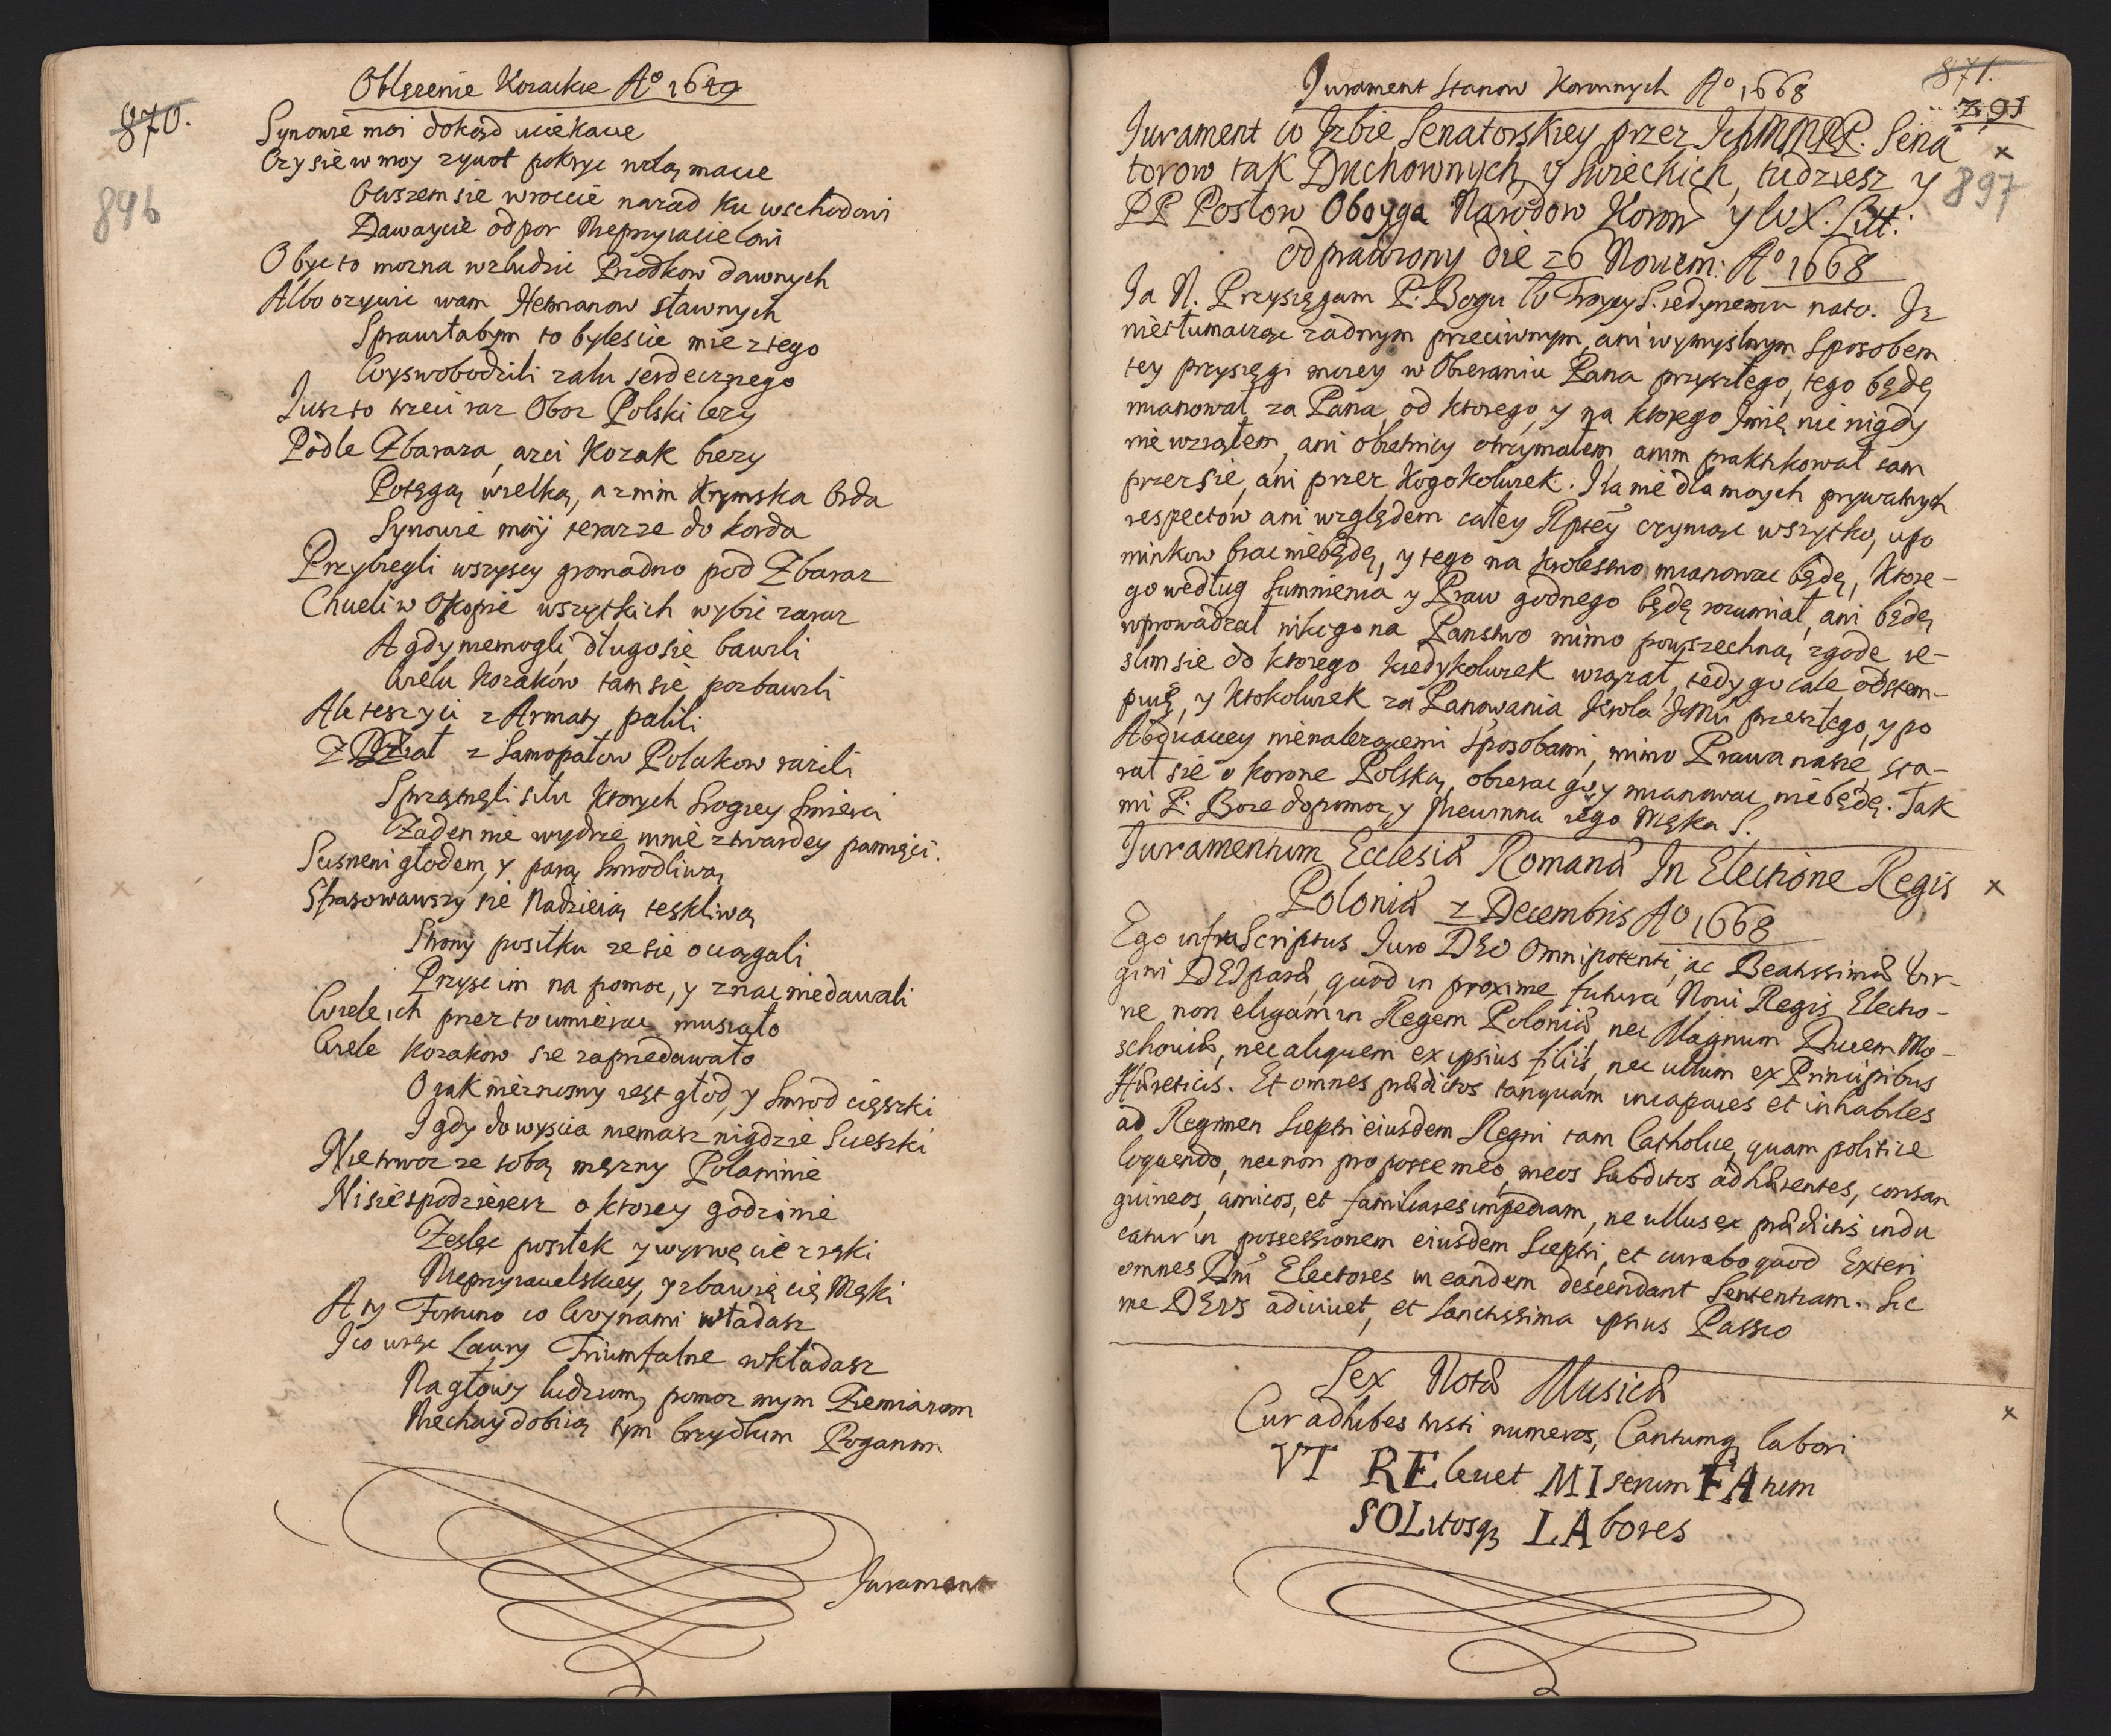 Oblęzenie Kozackie Aº 1649
870.
896
Synowie moi dokąd uciekacie
Czy sie w moy zywot pokryc wolą macie
Owszem sie wroccie nazad ku wschodowi
Dawaycie odpor Nieprzyiacielowi
O byc to mozna wzbudzic Przodkow dawnych
Albo ozywic wam Hetmanow sławnych
Sprawiłabym to byłescie mie z tego
Wyswobodzili zalu serdecznego
Iusz to trzeci raz Oboz Polski lezy
Podle Zbaraza, a zci Kozak biezy
Potęgą wielką, a z nim Krymska Orda
Synowie moij teraz ze do korda
Przybiegli wszyscy gromadno pod Zbaraz
Chcieli w Okopie wszytkich wybic zaraz
A gdy niemogli długo sie bawili
Wielu Kozaków tam sie pozbawili
Ale tesz y ci z Armaty palili
Z Dział z Samopałow Polakow razili
Sprzątnęli siłu ktorych srogiey smierci
Zaden nie wydrze mnie z twardey pamięci.
Scisnieni głodem, y parą smrodliwą
Strasowawszy sie Nadzieią teskliwą
Strony posiłku ze sie ociągali
Przysc im na pomoc, y znac niedawali
Wiele ich przez to umierac musiało
Wiele Kozakow sie zaprzedawało
O iak nieznosny iest głod, y smrod cięszki
I gdy do wyscia niemasz nigdzie Scieszki
Nie trwoz ze sobą mężny Polaninie
Ni sie spodzieiesz o ktorey godzinie
Zeslę posiłek y wyrwę cie z ręki
Nieprzyiacielskiey, y zbawię cię Męki
A ty Fortuno co Woynami władasz
I co wiąc Laury Triumfalne wkładasz
Na głowy ludziom, pomoz mym Ziemianom
Niechay dobiią tym brzydkim Poganom
Iurament
Iurament Stanow Koronnych Aº 1668
871.
291
897
Iurament w Izbie Senatorskiey przez Ichmmęę PP. Sena
torow tak Duchownych y swieckich, tudziesz y
PP Posłow Oboyga Narodow Koron y W.X. Litt:
odprawiony die 26 Novem: Aº 1668
Ia N. Przysięgam P. Bogu W Troycy S. iedynemu na to. Iz
nietłumacząc zadnym przeciwnym, ani wymyslnym sposobem
tey przysięgi moiey w Obieraniu Pana przyszłego, tego będę
mianował za Pana, od ktorego, y na ktorego Imię nic nigdy
nie wziąłem, ani obietnicy otrzymałem, anim praktikował sam
przez sie, ani przez kogokolwiek. I ia nie dla moych prywatnych
respectow ani względem całey Rptey czyniąc wszytko, upo
minkow brac niebędę, y tego na Krolestwo mianowac będę, ktore-
go według sumnienia y Praw godnego będę rozumiał, ani będę
wprowadzał nikogo na Panstwo mimo powszechną zgodę, ie-
slim sie do ktorego kiedykolwiek wiązał, tedy go cale odstem-
puię, y ktokolwiek za Panowania Krola JMci przeszłego, y po
Abdicaciey nienalezącemi sposobami, mimo Prawa nasze, sta-
rał sie o korone Polską, obierac go y mianowac niebędę. Tak
mi P. Boze dopomoz, y Niewinna iego Męka S.
Iuramentum Ecclesiæ Romanæ In Electione Regis
Poloniæ 2 Decembris Aº 1668
Ego infra Scriptus Iuro DEO Omnipotenti, ac Beatissimæ Vir-
gini DEIparæ, quod in proxime futura Novi Regis Electio-
ne non eligam in Regem Poloniæ, nec Magnum Ducem Mo-
schoviæ, nec aliquem ex ipsius filiis, nec ullum ex Principibus
Hæreticis. Et omnes prædictos tanquam incapaces et inhabiles
ad Regimen Sceptri eiusdem Regni tam Catholice, quam politice
loquendo, necnon pro posse meo, meos Subditos adhærentes, consan
guineos, amicos, et familiares impediam, ne ullus ex prædictis indu
catur in possessionem eiusdem Sceptri, et curabo quod Exteri
omnes Dni Electores in eandem descendant Sententiam. Sic
me DEVS adiuvet, et Sanctissima ipsius Passio
Sex Notæ Musicæ
Cur adhibes tristi numeros, Cantumq; labori
VT RElevet MIserum FAtum
SOLitosq; LAbores